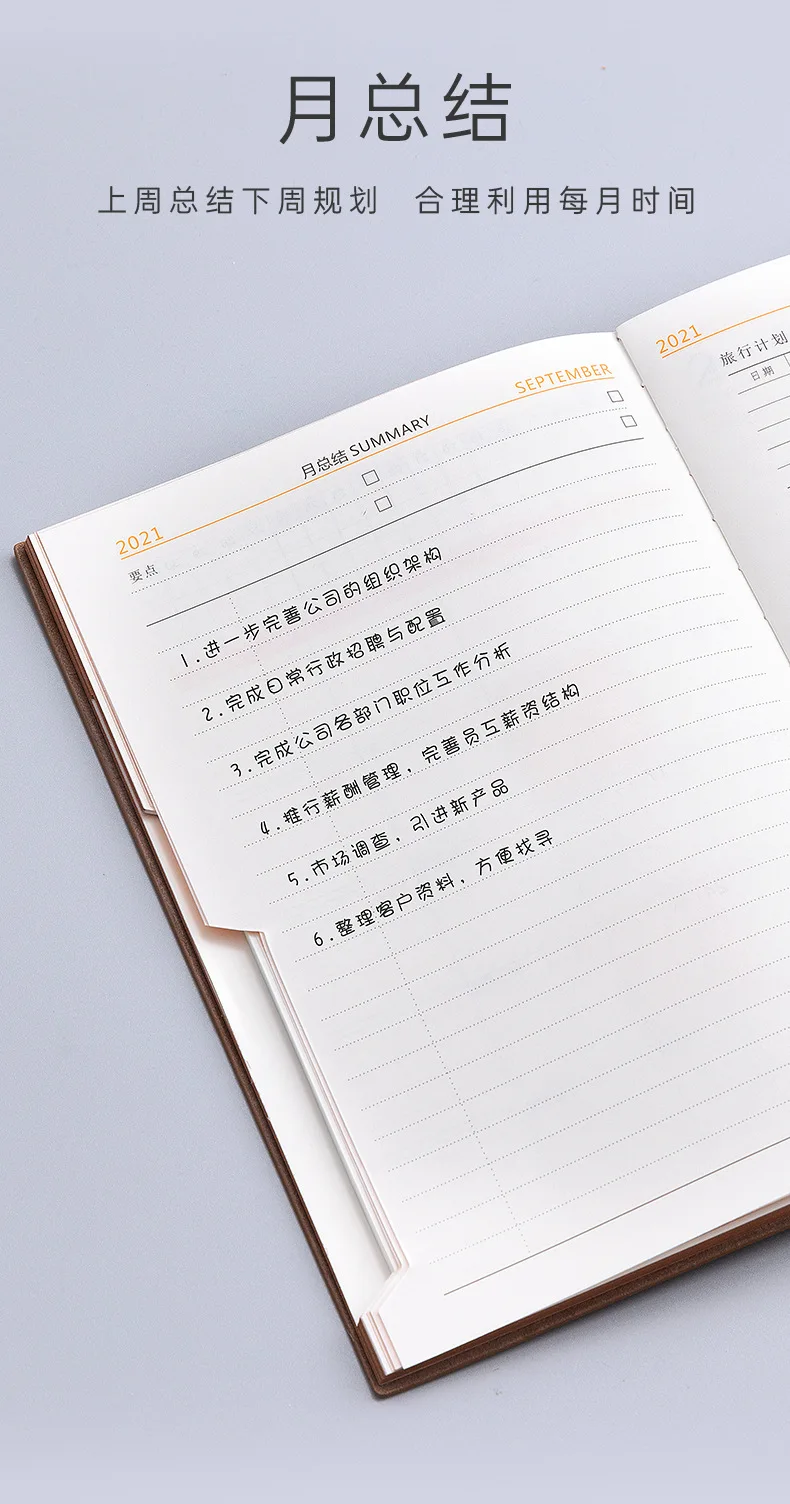 月总结
上周总结下周规划 合理利用每月时间
2021 月总结 SUMMARY SEPTEMBER
要点
1.进一步完善公司的组织架构
2.完成日常行政招聘与配置
3.完成公司各部门职位工作分析
4.推行薪酬管理，完善员工薪资结构
5.市场调查，引进新产品
6.整理客户资料，方便找寻
2021
旅行计划
日期